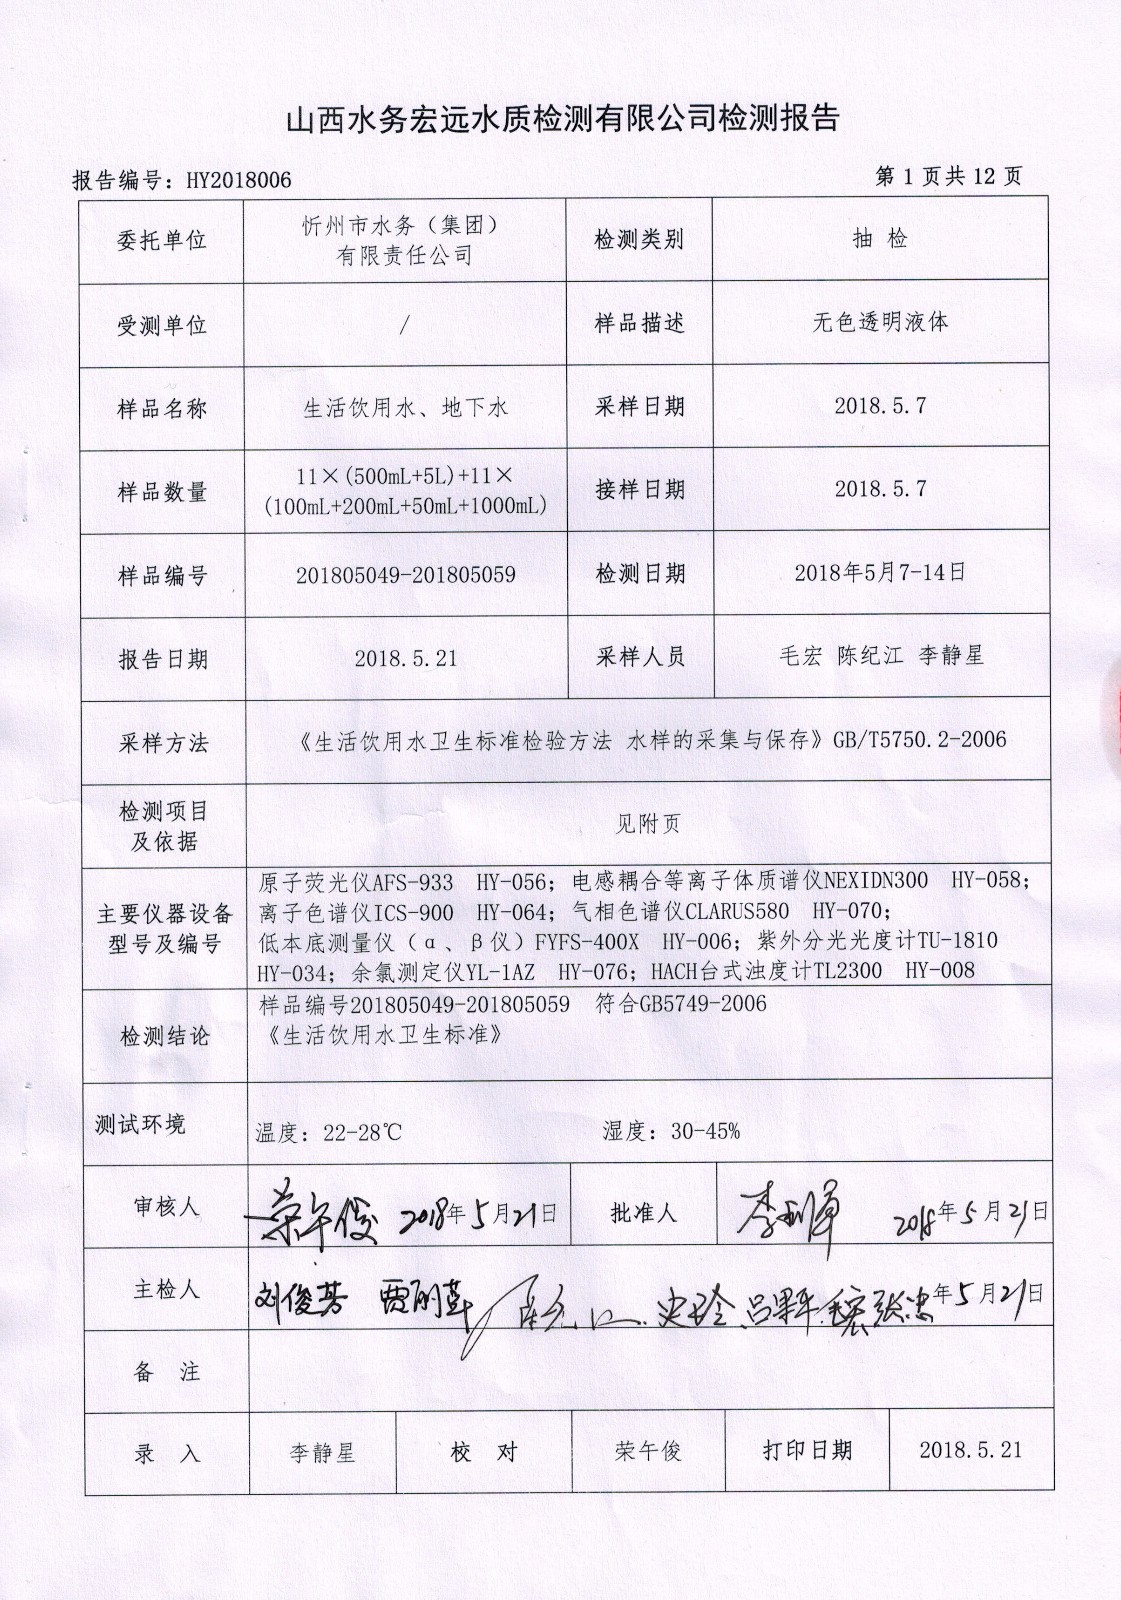 山西水务宏远水质检测有限公司检测报告
报告编号：HY2018006
第 1 页共 12 页
委托单位
忻州市水务（集团）
有限责任公司
检测类别
抽 检
受测单位
/
样品描述
无色透明液体
样品名称
生活饮用水、地下水
采样日期
2018.5.7
样品数量
11×(500mL+5L)+11×
(100mL+200mL+50mL+1000mL)
接样日期
2018.5.7
样品编号
201805049-201805059
检测日期
2018年5月7-14日
报告日期
2018.5.21
采样人员
毛宏 陈纪江 李静星
采样方法
《生活饮用水卫生标准检验方法 水样的采集与保存》GB/T5750.2-2006
检测项目
及依据
见附页
主要仪器设备
型号及编号
原子荧光仪AFS-933 HY-056；电感耦合等离子体质谱仪NEXIDN300 HY-058；
离子色谱仪ICS-900 HY-064；气相色谱仪CLARUS580 HY-070；
低本底测量仪（α、β仪）FYFS-400X HY-006；紫外分光光度计TU-1810
HY-034；余氯测定仪YL-1AZ HY-076；HACH台式浊度计TL2300 HY-008
检测结论
样品编号201805049-201805059 符合GB5749-2006
《生活饮用水卫生标准》
测试环境
温度：22-28℃
湿度：30-45%
审核人
荣午俊 2018年5月21日
批准人
2018年5月21日
主检人
刘俊芳 年5月21日
备 注
录 入
李静星
校 对
荣午俊
打印日期
2018.5.21